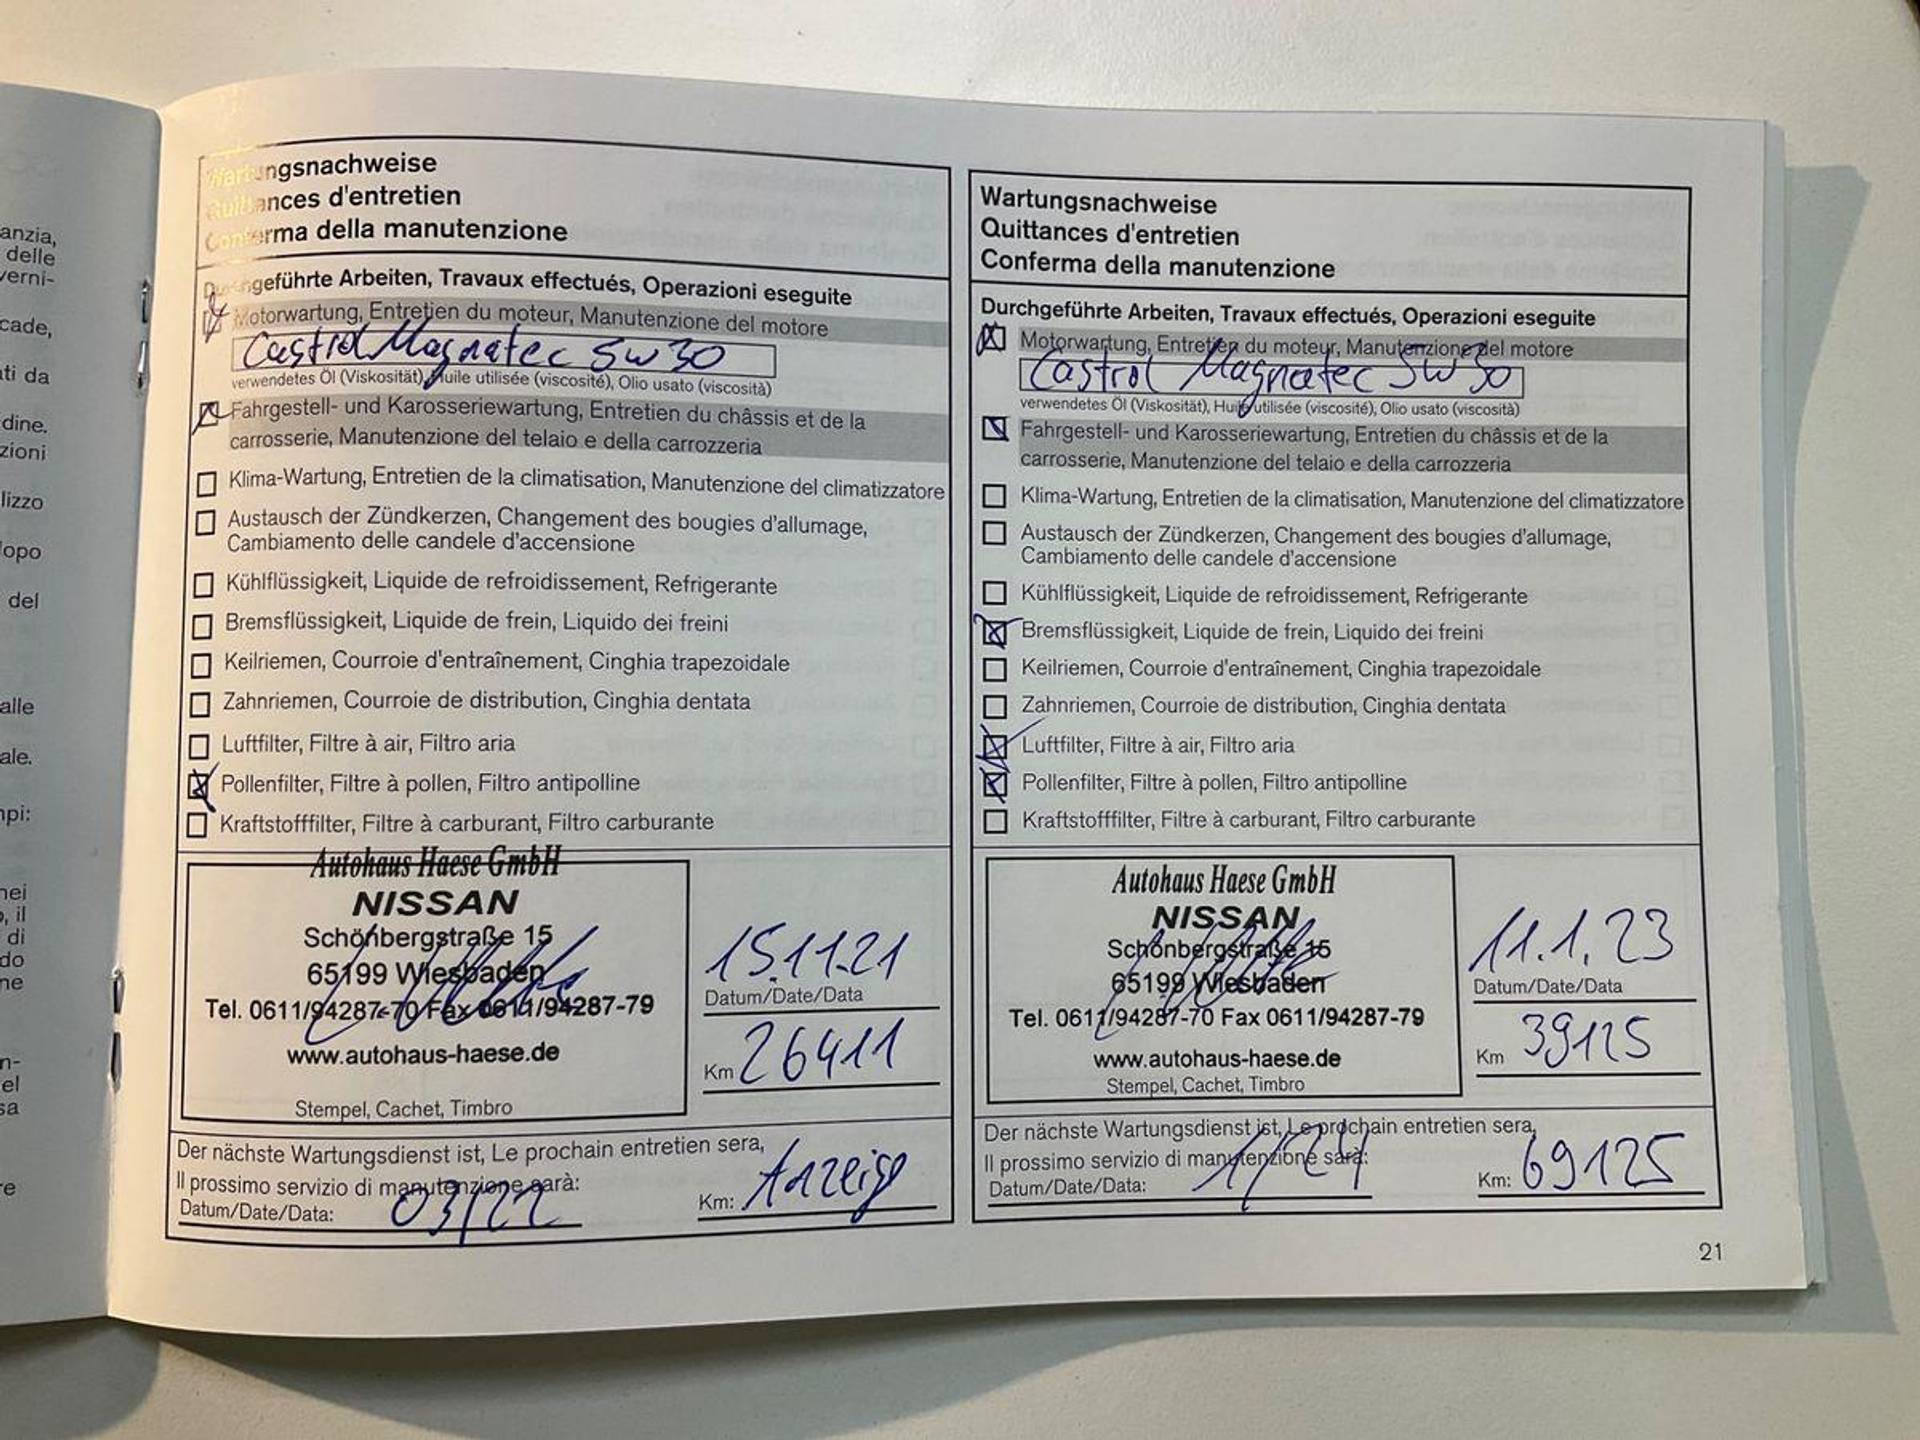 anzia,
delle
verni-
cade,
ati da
dine.
zioni
lizzo
opo
del
alle
ale.
npi:
nei
o, il
di
do
ne
n-
el
sa
re
Wartungsnachweise
Quittances d'entretien
Conferma della manutenzione
Durchgeführte Arbeiten, Travaux effectués, Operazioni eseguite
Motorwartung, Entretien du moteur, Manutenzione del motore
Castrol Magnatec 5W30
verwendetes Öl (Viskosität), Huile utilisée (viscosité), Olio usato (viscosità)
Fahrgestell- und Karosseriewartung, Entretien du châssis et de la
carrosserie, Manutenzione del telaio e della carrozzeria
Klima-Wartung, Entretien de la climatisation, Manutenzione del climatizzatore
Austausch der Zündkerzen, Changement des bougies d'allumage,
Cambiamento delle candele d'accensione
Kühlflüssigkeit, Liquide de refroidissement, Refrigerante
Bremsflüssigkeit, Liquide de frein, Liquido dei freini
Keilriemen, Courroie d'entraînement, Cinghia trapezoidale
Zahnriemen, Courroie de distribution, Cinghia dentata
Luftfilter, Filtre à air, Filtro aria
Pollenfilter, Filtre à pollen, Filtro antipolline
Kraftstofffilter, Filtre à carburant, Filtro carburante
Autohaus Haese GmbH
NISSAN
Schönbergstraße 15
65199 Wiesbaden
Tel. 0611/94287-70 Fax 0611/94287-79
www.autohaus-haese.de
Stempel, Cachet, Timbro
15.11.21
Datum/Date/Data
Km 26411
Der nächste Wartungsdienst ist, Le prochain entretien sera,
Il prossimo servizio di manutenzione sarà:
Datum/Date/Data: 03/22
Km: Anzeige
Wartungsnachweise
Quittances d'entretien
Conferma della manutenzione
Durchgeführte Arbeiten, Travaux effectués, Operazioni eseguite
Motorwartung, Entretien du moteur, Manutenzione del motore
Castrol Magnatec 5W30
verwendetes Öl (Viskosität), Huile utilisée (viscosité), Olio usato (viscosità)
Fahrgestell- und Karosseriewartung, Entretien du châssis et de la
carrosserie, Manutenzione del telaio e della carrozzeria
Klima-Wartung, Entretien de la climatisation, Manutenzione del climatizzatore
Austausch der Zündkerzen, Changement des bougies d'allumage,
Cambiamento delle candele d'accensione
Kühlflüssigkeit, Liquide de refroidissement, Refrigerante
Bremsflüssigkeit, Liquide de frein, Liquido dei freini
Keilriemen, Courroie d'entraînement, Cinghia trapezoidale
Zahnriemen, Courroie de distribution, Cinghia dentata
Luftfilter, Filtre à air, Filtro aria
Pollenfilter, Filtre à pollen, Filtro antipolline
Kraftstofffilter, Filtre à carburant, Filtro carburante
Autohaus Haese GmbH
NISSAN
Schönbergstraße 15
65199 Wiesbaden
Tel. 0611/94287-70 Fax 0611/94287-79
www.autohaus-haese.de
Stempel, Cachet, Timbro
11.1.23
Datum/Date/Data
Km 39125
Der nächste Wartungsdienst ist, Le prochain entretien sera,
Il prossimo servizio di manutenzione sarà:
Datum/Date/Data: 1/24
Km: 69125
21